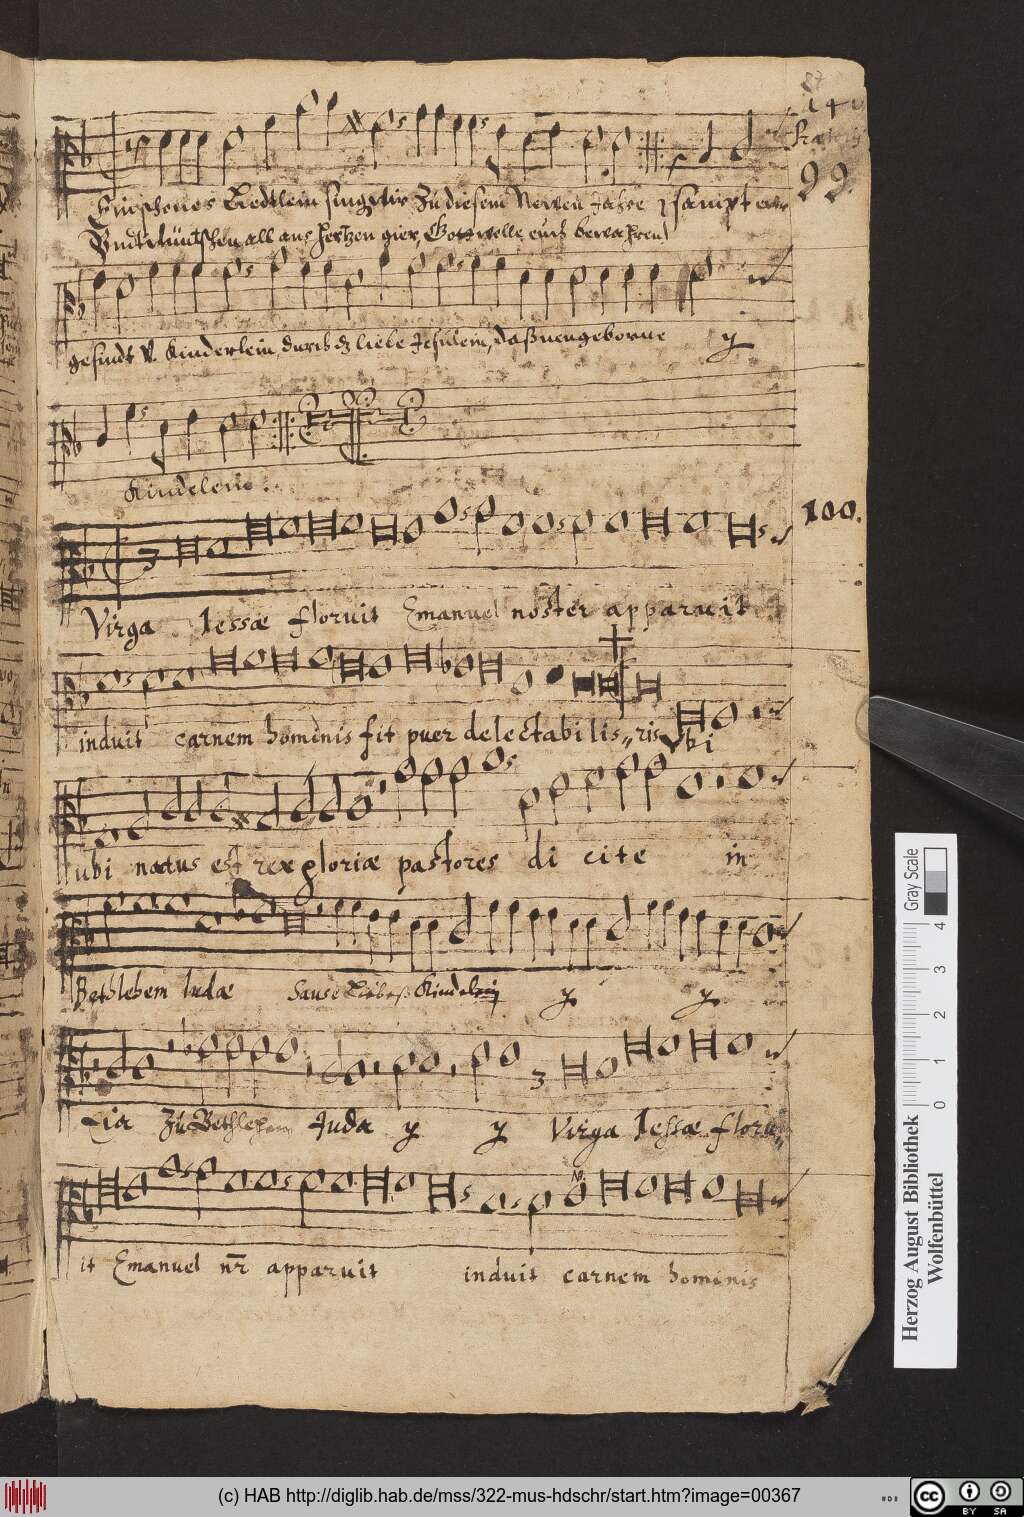 87
99
Ein schönes Liedtlein singt wir Zu diesem Newen Jahre sampt
Vndt wüntschen all aus hertzen gier, Gott wolle euch bewahren
gesindt v. Kinderlein, durch dz liebe Jesulein, daß neugeborne y
Kindelein.
100.
Virga Iessæ floruit Emanuel noster apparuit
induit carnem hominis fit puer delectabilis,, ris Vbi
ubi natus est rex gloriæ pastores di cite in
Bethlehem Iudæ Sause Liebeß Kindelein y y
Eia Zu Bethlehem Juda y y Virga Iessæ floru,,
it Emanuel nr̃ apparuit induit carnem hominis
Gray Scale
0 1 2 3 4
Herzog August Bibliothek
Wolfenbüttel
(c) HAB http://diglib.hab.de/mss/322-mus-hdschr/start.htm?image=00367
cc BY SA